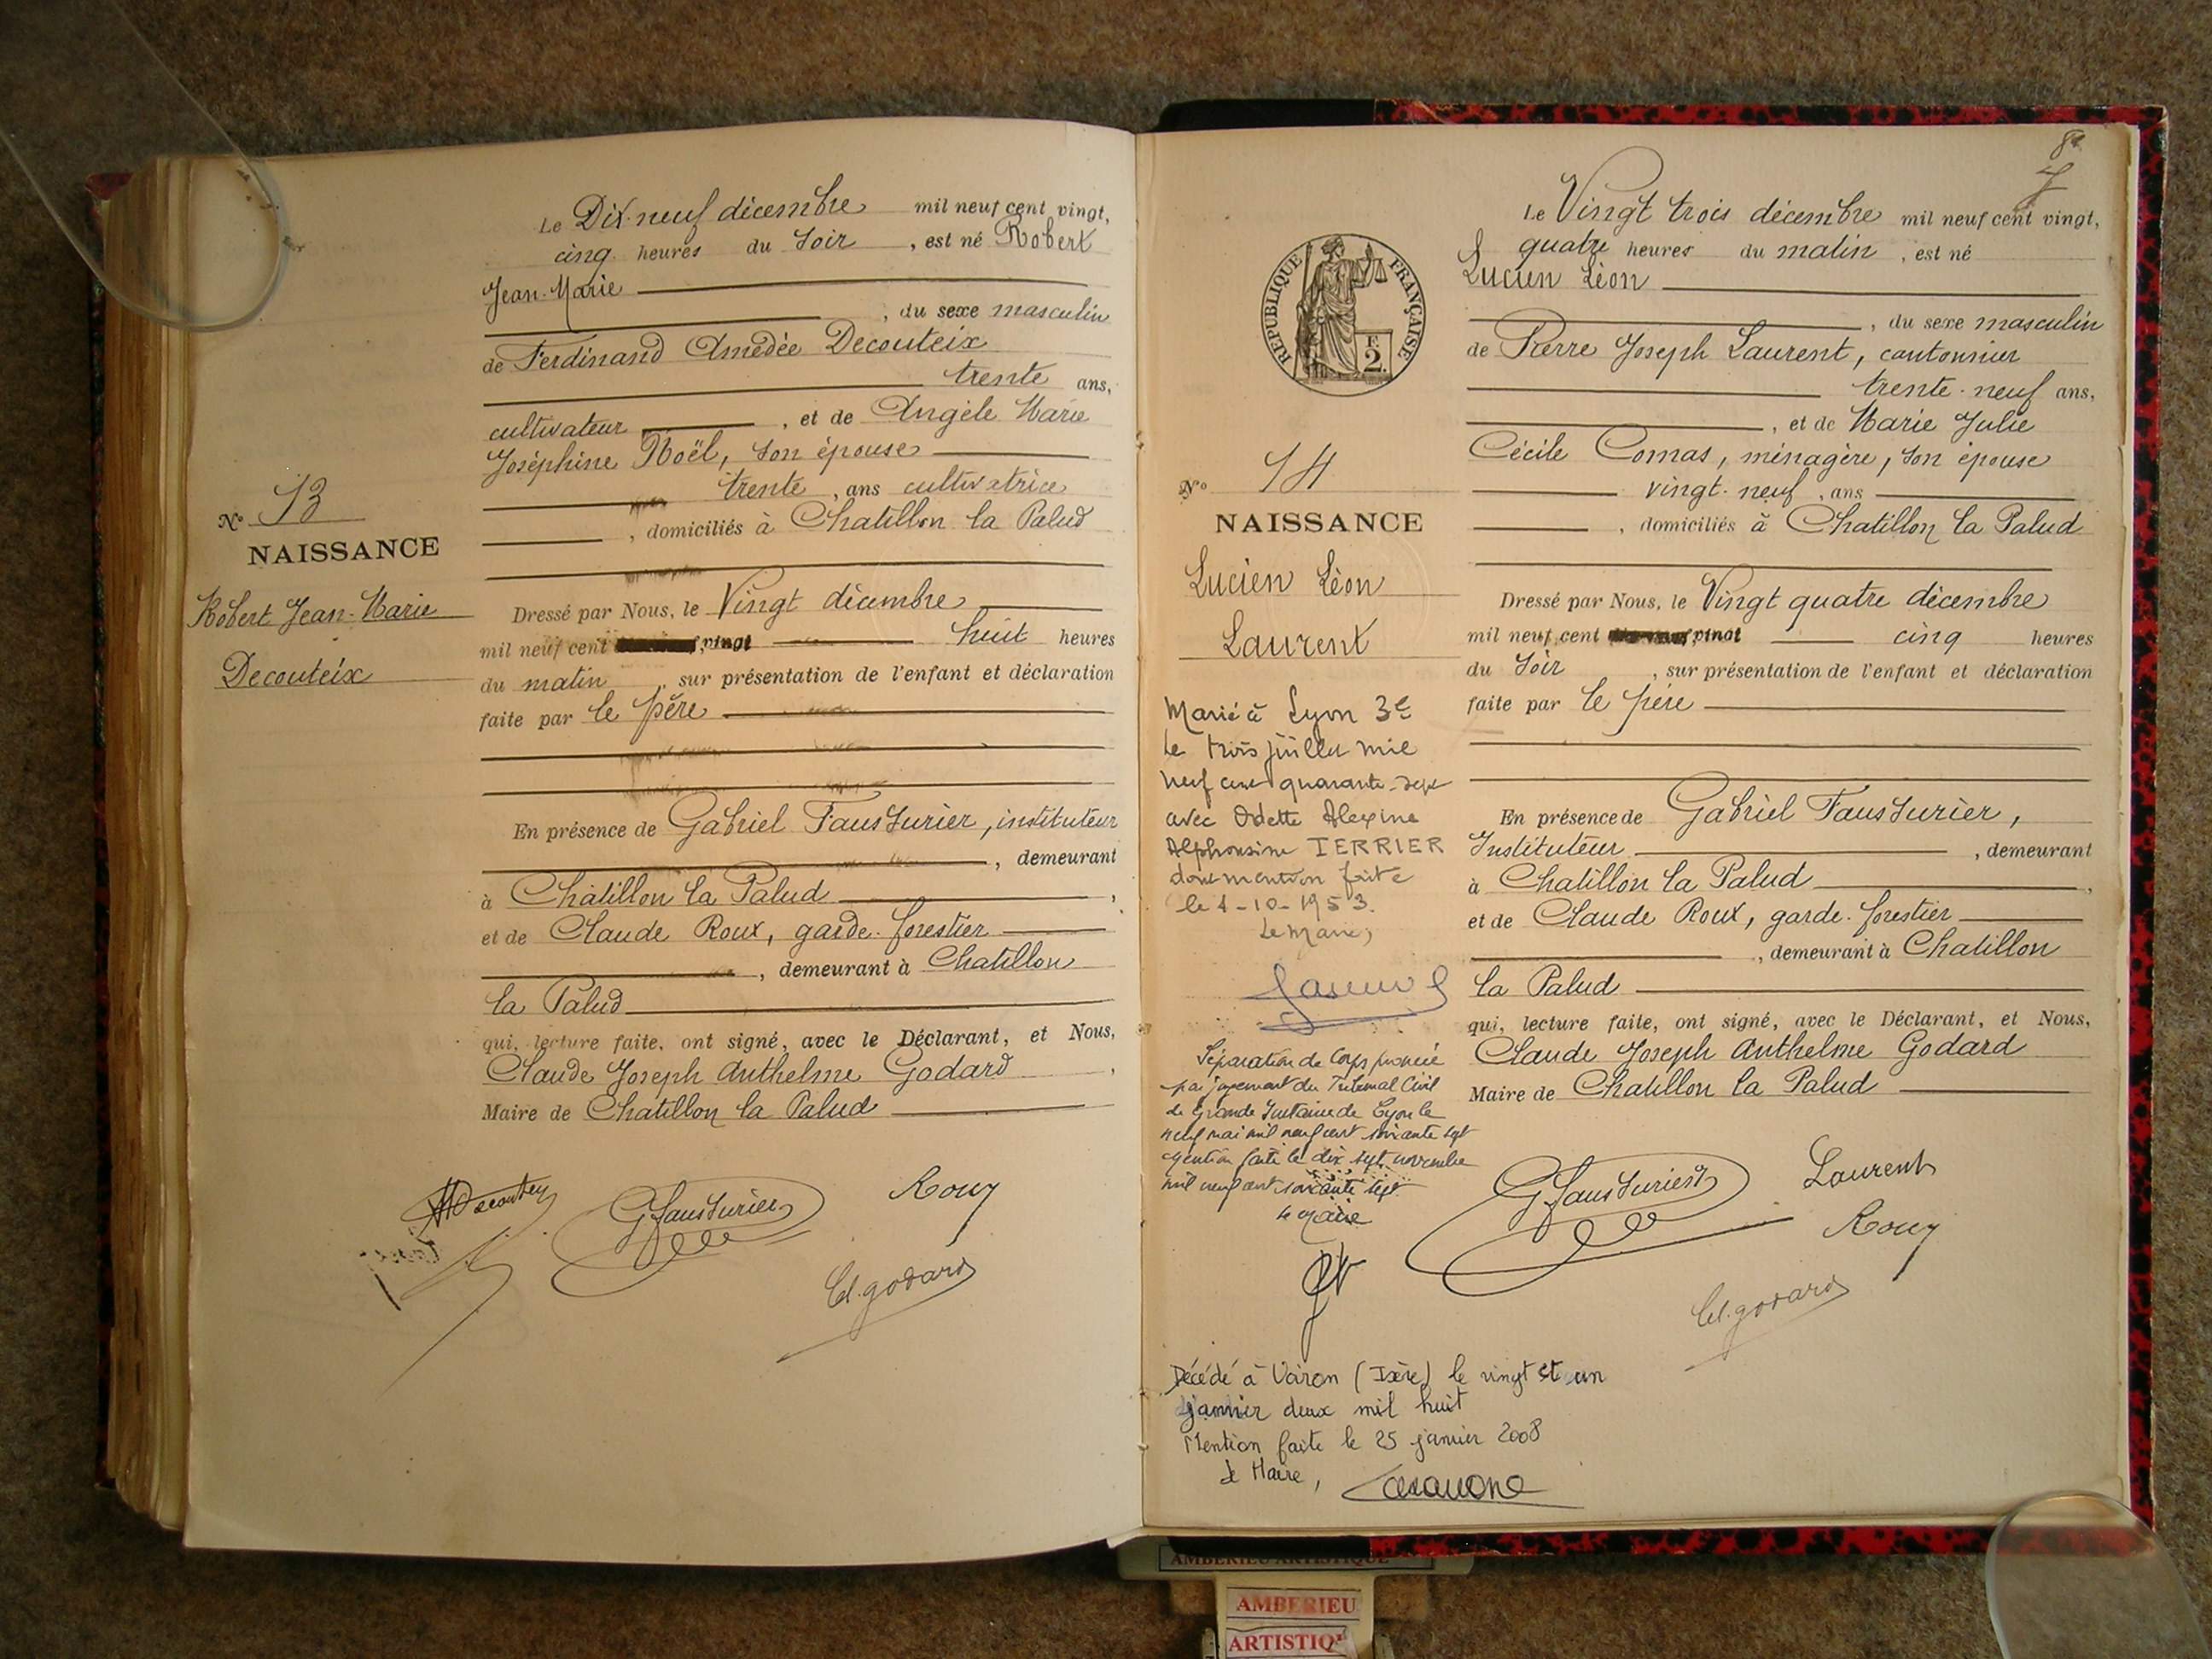 Le Dix-neuf décembre mil neuf cent vingt,
cinq heures du soir, est né Robert
Jean-Marie
, du sexe masculin
de Ferdinand Amédée Decouteix
trente ans,
cultivateur, et de Angèle Marie
Joséphine Noël, son épouse
trente, ans cultivatrice
, domiciliés à Chatillon la Palud
No 13
NAISSANCE
Robert Jean-Marie
Decouteix
Dressé par Nous, le Vingt décembre
mil neuf cent vingt huit heures
du matin, sur présentation de l'enfant et déclaration
faite par le père
En présence de Gabriel Faussurier, instituteur
, demeurant
à Châtillon la Palud,
et de Claude Roux, garde-forestier
, demeurant à Chatillon
la Palud
qui, lecture faite, ont signé, avec le Déclarant, et Nous,
Claude Joseph Anthelme Godard,
Maire de Chatillon la Palud
GFaussurier
Roux
Cl. godard
8
Le Vingt trois décembre mil neuf cent vingt,
quatre heures du matin, est né
Lucien Léon
, du sexe masculin
de Pierre Joseph Laurent, cantonnier
trente-neuf ans,
, et de Marie Julie
Cécile Comas, ménagère, son épouse
vingt-neuf, ans
, domiciliés à Chatillon la Palud
REPUBLIQUE FRANÇAISE
F.
2.
No 14
NAISSANCE
Lucien Léon
Laurent
Marié à Lyon 3e
le trois juillet mil
neuf cent quarante-sept
avec Odette Alexine
Alphonsine TERRIER
dont mention faite
le 1-10-1953.
Le Maire,
Séparation de Corps prononcé
par jugement du Tribunal Civil
de Grande Instance de Lyon le
neuf mai mil neuf cent soixante sept
Mention faite le dix sept novembre
mil neuf cent soixante sept
Le Maire
Décédé à Voiron (Isère) le vingt et un
janvier deux mil huit
Mention faite le 25 janvier 2008
Le Maire,
Dressé par Nous, le Vingt quatre décembre
mil neuf cent vingt cinq heures
du soir, sur présentation de l'enfant et déclaration
faite par le père
En présence de Gabriel Faussurier,
Instituteur, demeurant
à Chatillon la Palud,
et de Claude Roux, garde-forestier
, demeurant à Chatillon
la Palud
qui, lecture faite, ont signé, avec le Déclarant, et Nous,
Claude Joseph Anthelme Godard
Maire de Chatillon la Palud
GFaussurier
Laurent
Roux
Cl. godard
AMBERIEU ARTISTIQUE
AMBERIEU
ARTISTIQ